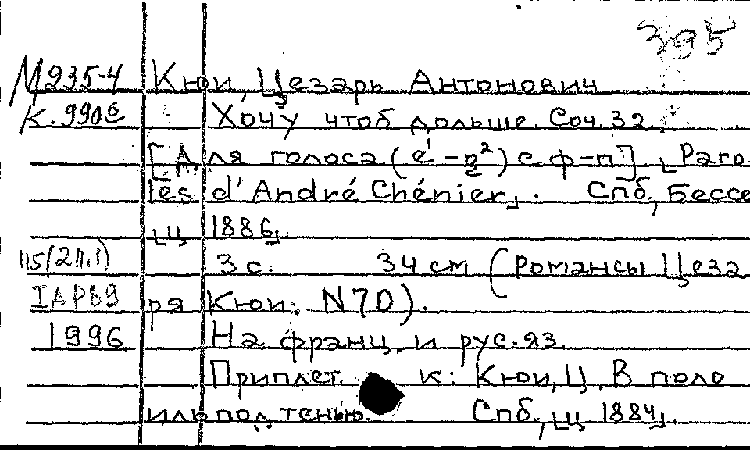 395
М235-4 Кюи, Цезарь Антонович
К.990 Хочу чтоб дольше. Соч. 32.
[Для голоса (e¹-g²) с ф-п]. Paro
les d'André Chénier. Спб, Бессе
ц 1886
115/2 3 с. 34 см (Романсы Цеза
ря Кюи. N 70).
1996 На франц. и рус. яз.
Приплет. к: Кюи, Ц. В поле
Спб, ц 1884.